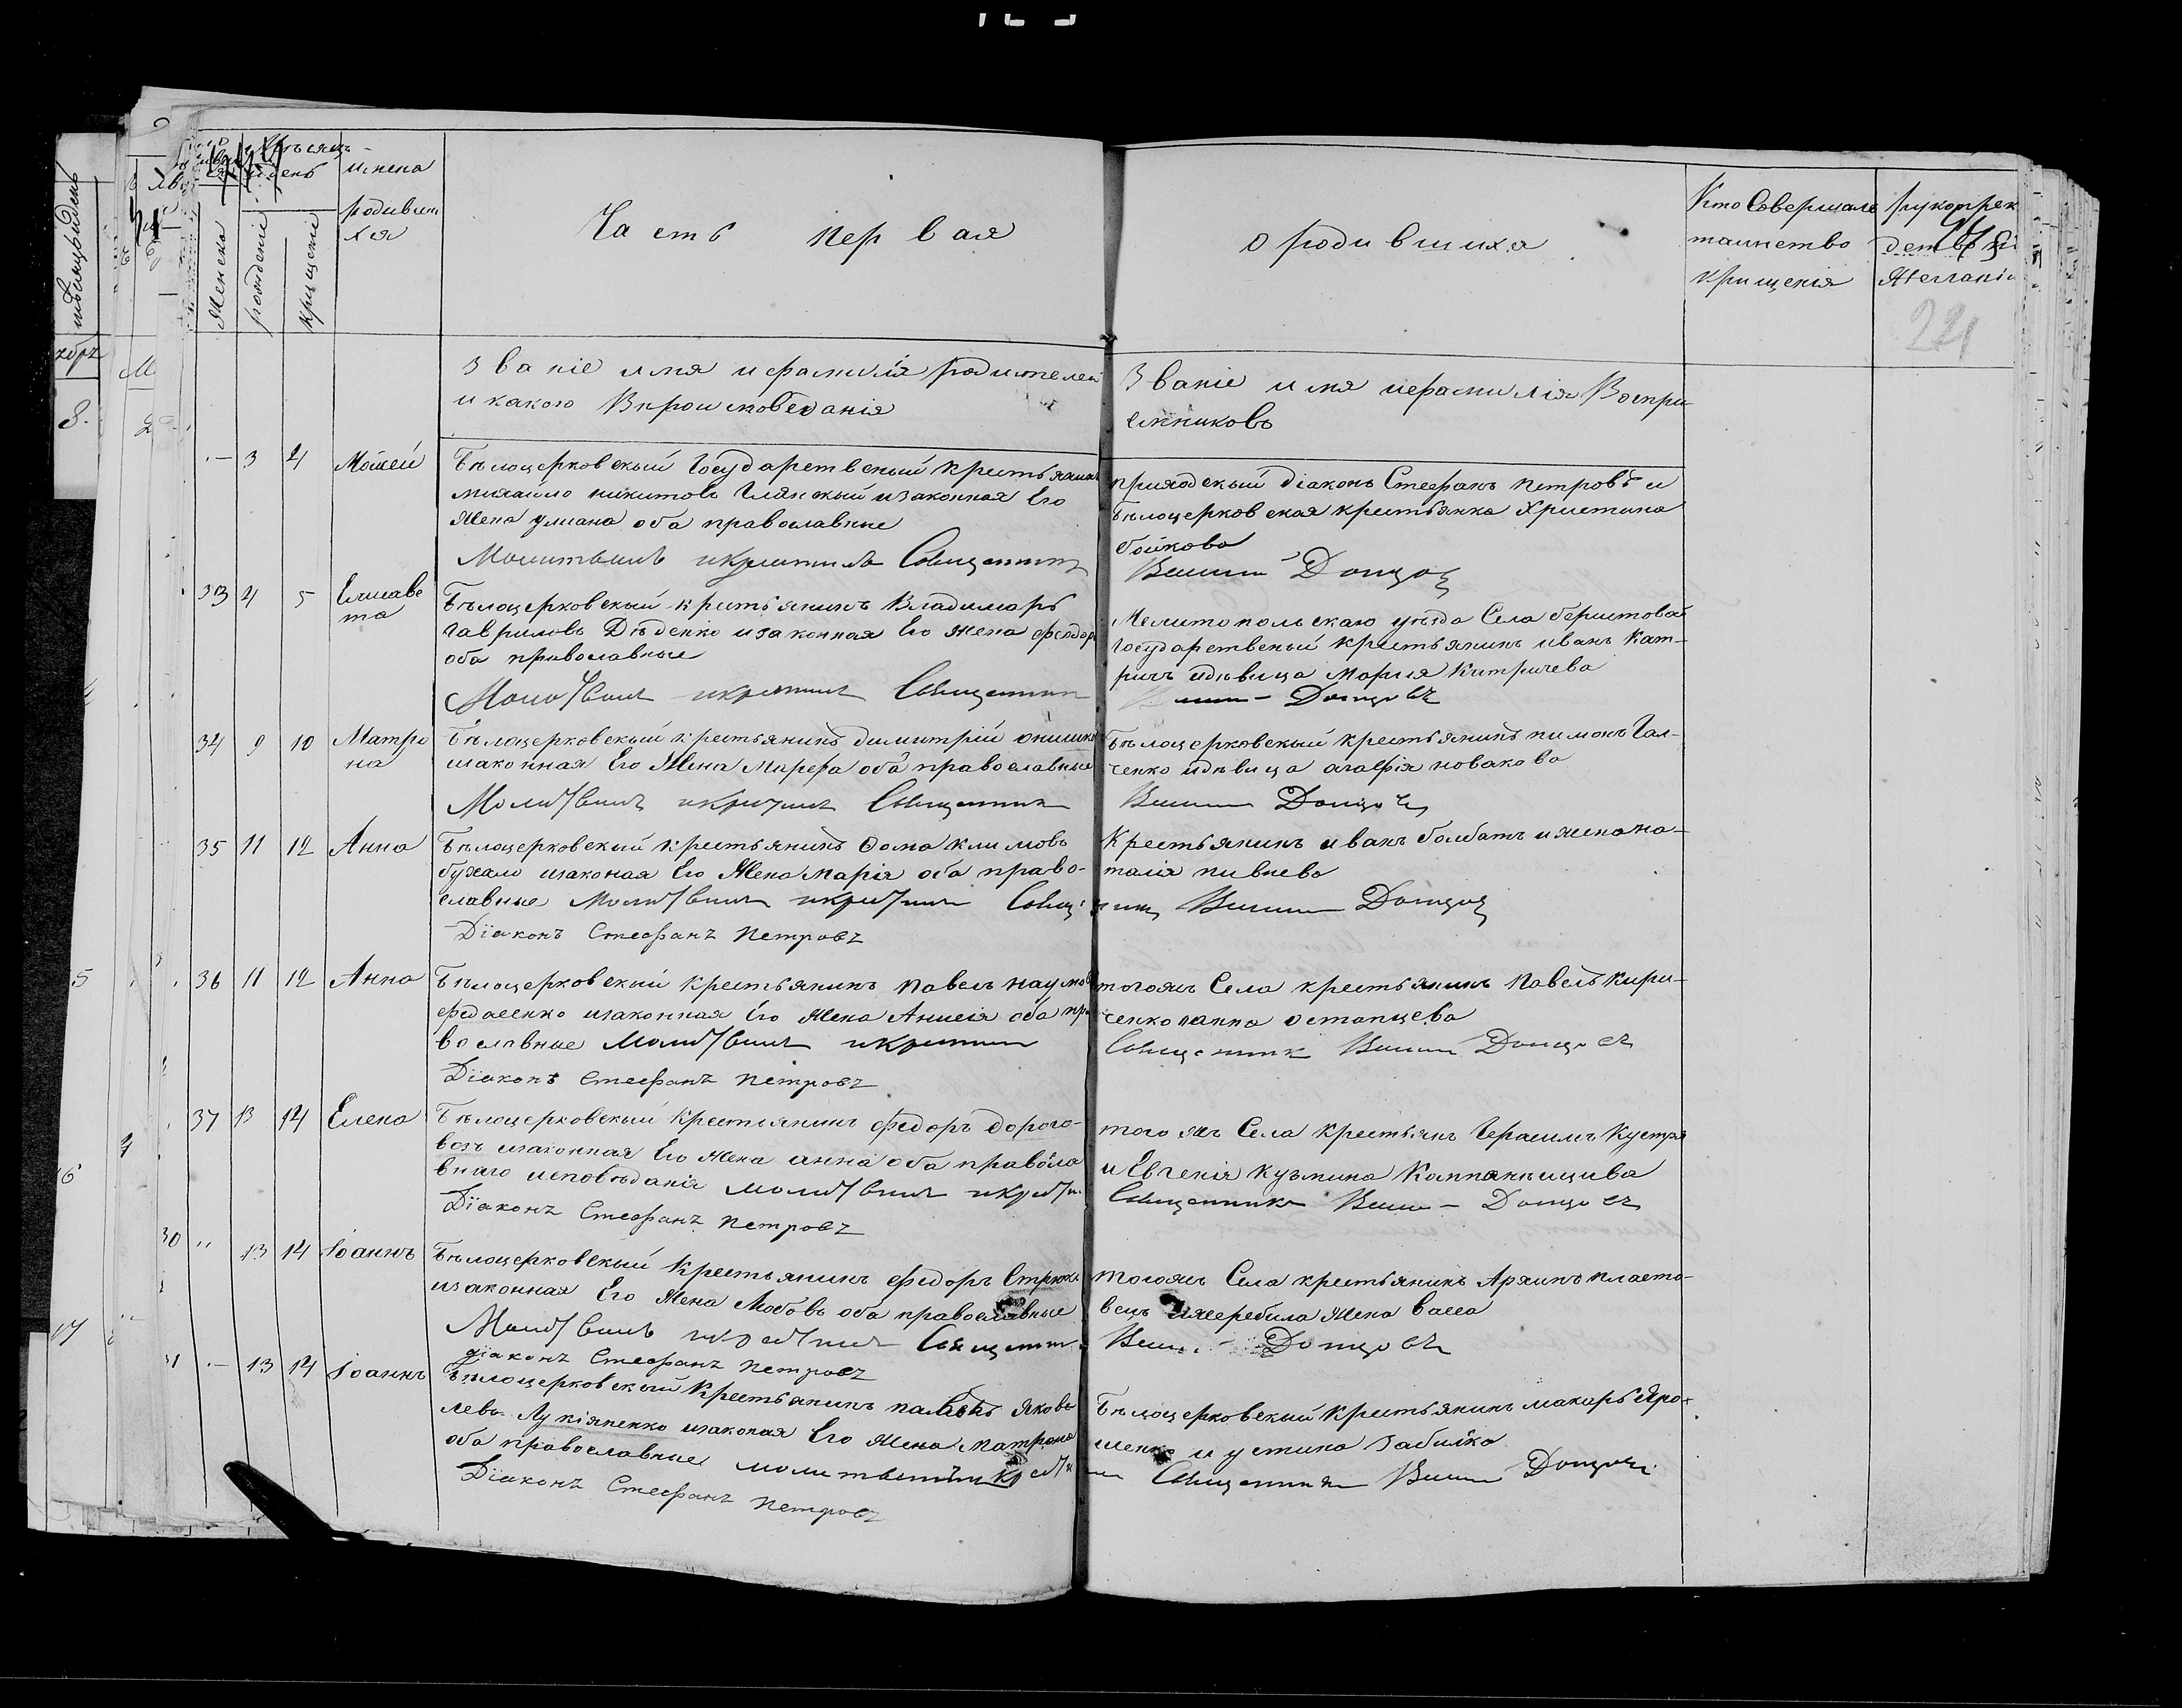 Мѣсяцъ
и день
имена
родивших
ся
Женска
рожденіе
крщщеніе
Часть первая
о родившихся
Кто Совершалъ
таинство
крищенія
рукопрек
детво
221
Званіе имя и фамилія родителей
и какого Вироисповеданія
Званіе имя и фамилія Воспри
емниковъ
3 4 Мойсей
Бѣлоцерковскый Государственый крестьянинъ
михайло никитовъ Глянскый изаконная Его
Жена улиана оба православные
Молитвилъ икрестилъ Священникъ
приходскый діаконъ Стефанъ Петровъ и
Бѣлоцерковская крестьянка Христина
бойкова
Донцов
33 4 5 Елисаве
та
Бѣлоцерковскый крестьянинъ Владимиръ
Гавриловъ Дѣденко изаконная Его жена феодор
оба православные
Молитвилъ икрестилъ Священник
Мелитопольскаго уѣзда Села берестовай
государственый крестьянинъ иванъ Кат-
ричъ идѣвица Марія Катричева
Донцовъ
34 9 10 Матро
на
Бѣлоцерковскый крестьянинъ димитрій онишко
изаконная Его Жена Марфа оба православные
Молитвилъ икрестилъ Священник
Бѣлоцерковскый крестьянинъ пимонъ Гал-
ченко идѣвица агафія новакова
Донцовъ
35 11 12 Анна
Бѣлоцерковскый крестьянинъ Фома климовъ
бухало изаконая Его Жена Марія оба право-
славные Молитвилъ икрестилъ Священник
Діаконъ Стефанъ Петровъ
Крестьянинъ иванъ болбатъ и жена на-
талія пивнева
Донцов
36 11 12 Анна
Бѣлоцерковскый крестьянинъ Павелъ наумов
федосенко изаконная Его Жена Анисія оба пра
вославные Молитвилъ икрестил
Діаконъ Стефанъ Петровъ
тогожъ Села крестьянинъ Павелъ Кири-
ченко ианна остапцева
Священник Донцовъ
37 13 14 Елена
Бѣлоцерковскый крестиянинъ федоръ дорого-
возъ изаконная Его жена анна оба правосла
внаго исповѣданія молитвилъ икрести
Діаконъ Стефанъ Петровъ
того жъ Села крестьянъ Герасимъ Кустря
и Евгенія Кузьмина
Священникъ Донцовъ
30 " 13 14 Іоаннъ
Бѣлоцерковскый Крестьянинъ федоръ Стрюкъ
изаконная Его Жена Любовъ оба православные
Молитвилъ икрестилъ Священник
діаконъ Стефанъ Петровъ
тогожъ Села крестьянинъ пласто-
вецъ ижеребила Жена васса
Донцовъ
31 13 14 Іоаннъ
Бѣлоцерковскый Крестьянинъ павелъ Яковъ
левъ Лукіяненко изаконая Его Жена Матрона
оба православные молитвилъ икрести
Діаконъ Стефанъ Петровъ
Бѣлоцерковскый крестьянинъ макаръ Яро-
шенко и устина Забилка
Священникъ Донцовъ